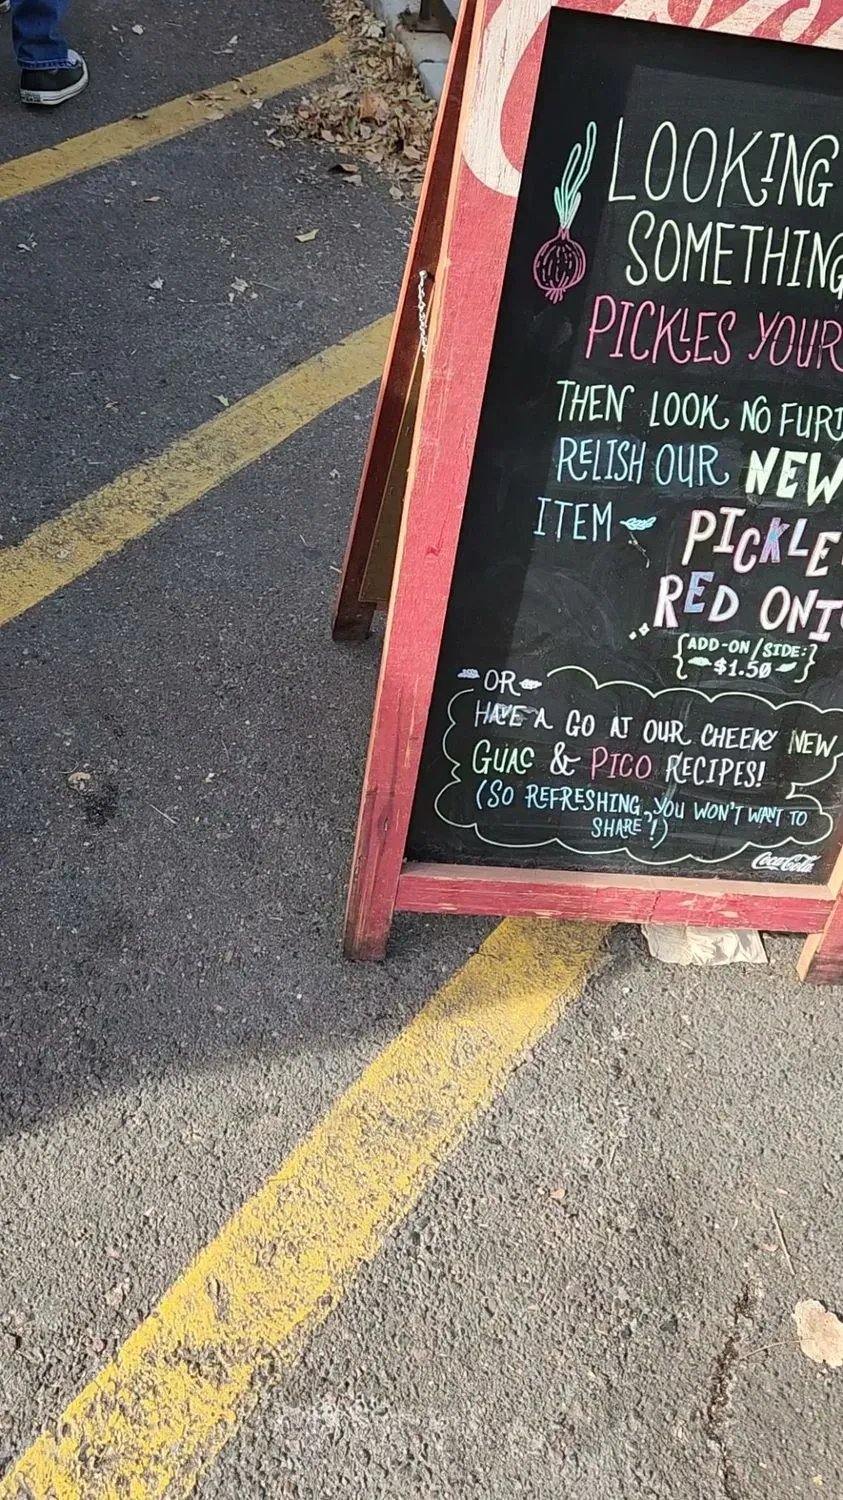 LOOKING
SOMETHING
PICKLES YOUR
THEN LOOK NO FURT
RELISH OUR NEW
ITEM
PICKLE
RED ONI
{ADD-ON/SIDE:}
$1.50
OR
HAVE A GO AT OUR CHEEKY NEW
GUAC & PICO RECIPES!
(SO REFRESHING, YOU WON'T WANT TO
SHARE!)
Coca-Cola